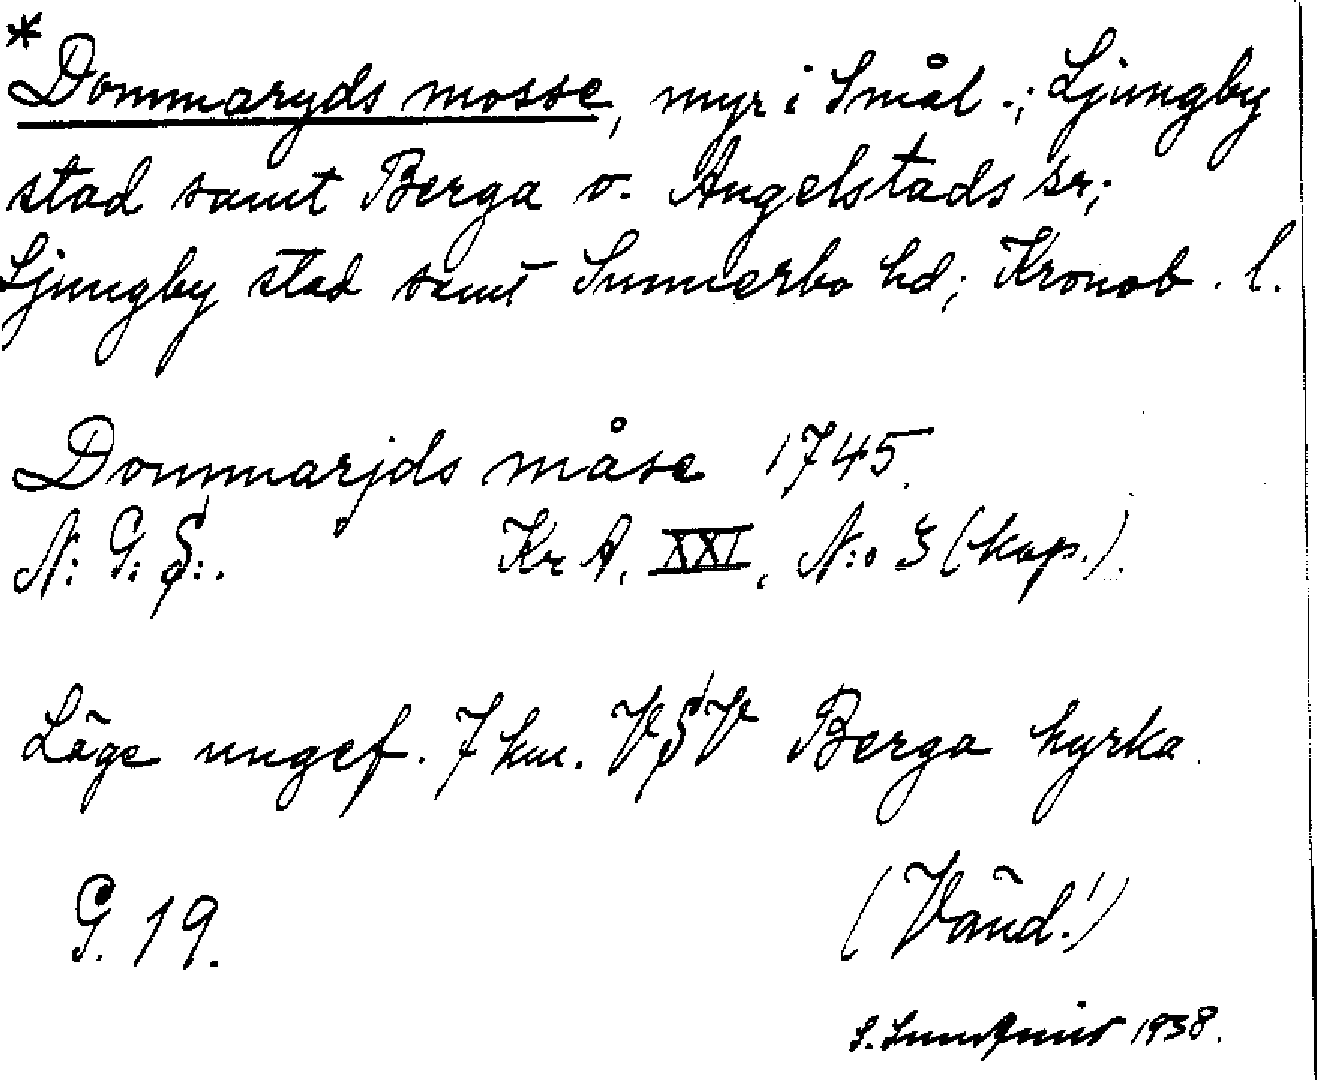 *
Dommaryds mosse, myr i Smål.; Ljungby
stad samt Berga o. Angelstads sr;
Ljungby stad samt Sunnerbo hd; Kronob. l.
Dommarjds måse 1745.
N: G: S:. Kr A. XXI, N:o 3 (kop.).
Läge ungef. 7 km. VSV Berga kyrka.
G. 19. (Vänd!)
1938.